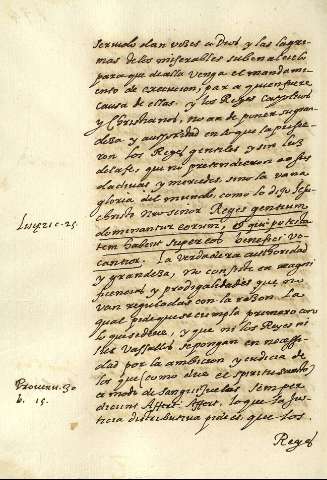 servulo dan vozes a Dios y las lagri-
mas de los miserables suben al cielo
para que de alla venga el mandami-
ento de execucion, para quien fuere
causa de ellas. y los Reyes
y Christianos, no an de poner su gran-
deza y autoridad en lo que la pusie-
ron los Reyes gentiles y sin luz
de la fee, que no pretendieron
dadiuas, y mercedes, sino la vana
gloria del mundo, como lo dijo Jesu
christo nuestro señor Reges gentium
dominantur eorum, et qui potesta-
tem habent super eos benefici vo-
cantur. La verdadera authoridad
y grandeza, no consiste en magni
ficencias y prodigalidades que no
van reguladas con la razon. La
qual pide que se cumpla primero con
lo que se deue, y que ni los Reyes ni
sus Vassallos se pongan en necessi-
dad por la ambicion y cudicia de
los que (como dice el spiritu sancto)
a modo de sanguijuelas semper
dicunt Affer Affer. lo que la Jus-
ticia distributiva pide es, que los
Reyes
Luc. 22 c. 25
Prouerb. 30
15.